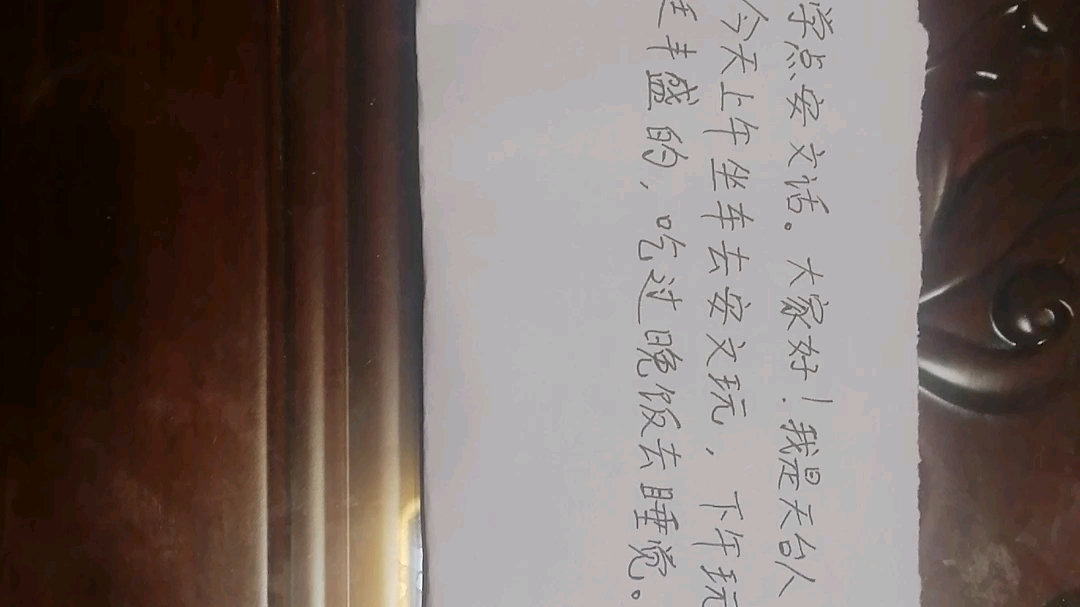 学点安文话。大家好！我是天台人
今天上午坐车去安文玩，下午玩
丰盛的，吃过晚饭去睡觉。